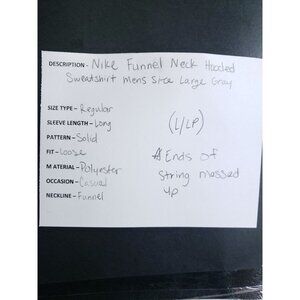 DESCRIPTION- Nike Funnel Neck Hooded
Sweatshirt Mens Size Large Gray
SIZE TYPE- Regular
SLEEVE LENGTH- Long
PATTERN- Solid
FIT- Loose
MATERIAL- Polyester
OCCASION- Casual
NECKLINE- Funnel
(L/LP)
Ends of
String messed
up